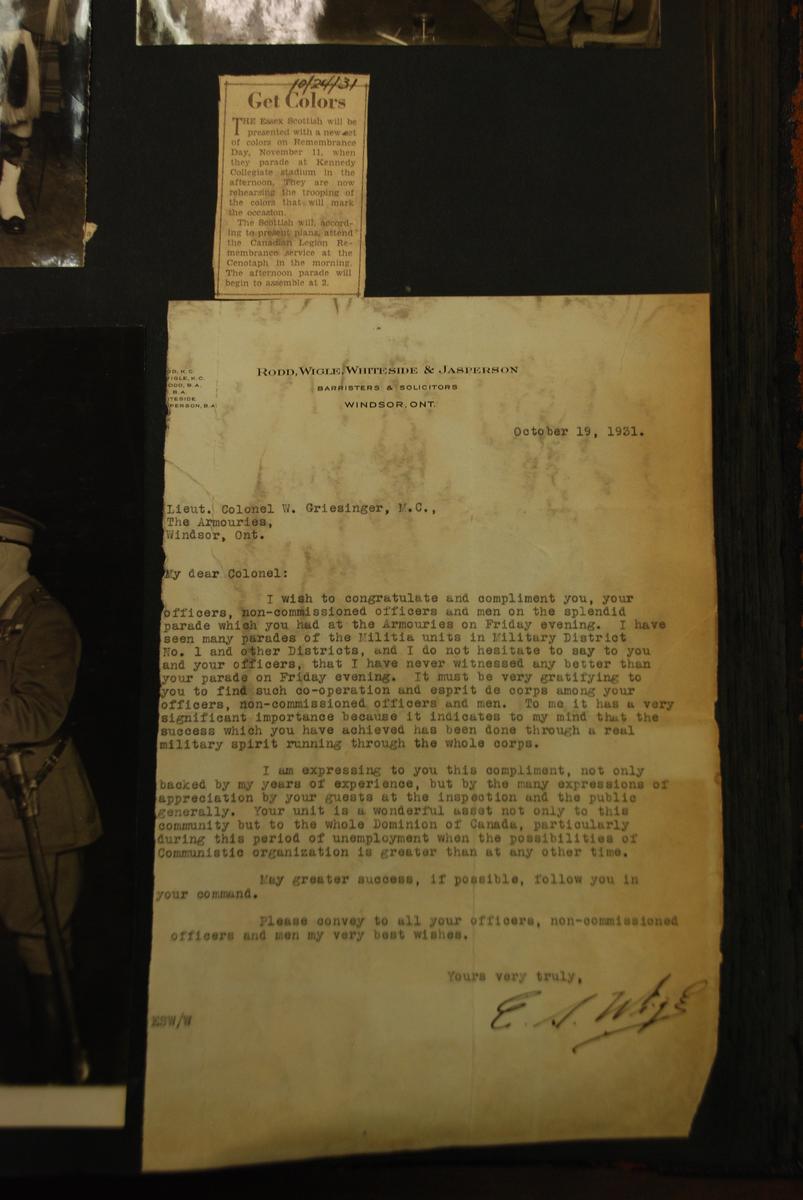 10/24/31
Get Colors
THE Essex Scottish will be
presented with a new set
of colors on Remembrance
Day, November 11, when
they parade at Kennedy
Collegiate stadium in the
afternoon. They are now
rehearsing the trooping of
the colors that will mark
the occasion.
The Scottish will, accord-
ing to present plans, attend
the Canadian Legion Re-
membrance service at the
Cenotaph in the morning.
The afternoon parade will
begin to assemble at 2.
RODD, WIGLE, WHITESIDE & JASPERSON
BARRISTERS & SOLICITORS
WINDSOR, ONT.
DD, K.C.
IGLE, K.C.
ODD, B.A.
B.A.
ITESIDE
PERSON, B.A.
October 19, 1931.
Lieut. Colonel W. Griesinger, M.C.,
The Armouries,
Windsor, Ont.
My dear Colonel:
I wish to congratulate and compliment you, your
officers, non-commissioned officers and men on the splendid
parade which you had at the Armouries on Friday evening. I have
seen many parades of the Militia units in Military District
No. 1 and other Districts, and I do not hesitate to say to you
and your officers, that I have never witnessed any better than
your parade on Friday evening. It must be very gratifying to
you to find such co-operation and esprit de corps among your
officers, non-commissioned officers and men. To me it has a very
significant importance because it indicates to my mind that the
success which you have achieved has been done through a real
military spirit running through the whole corps.
I am expressing to you this compliment, not only
backed by my years of experience, but by the many expressions of
appreciation by your guests at the inspection and the public
generally. Your unit is a wonderful asset not only to this
community but to the whole Dominion of Canada, particularly
during this period of unemployment when the possibilities of
Communistic organization is greater than at any other time.
May greater success, if possible, follow you in
your command.
Please convey to all your officers, non-commissioned
officers and men my very best wishes.
Yours very truly,
E. S. Wigle
ESW/W